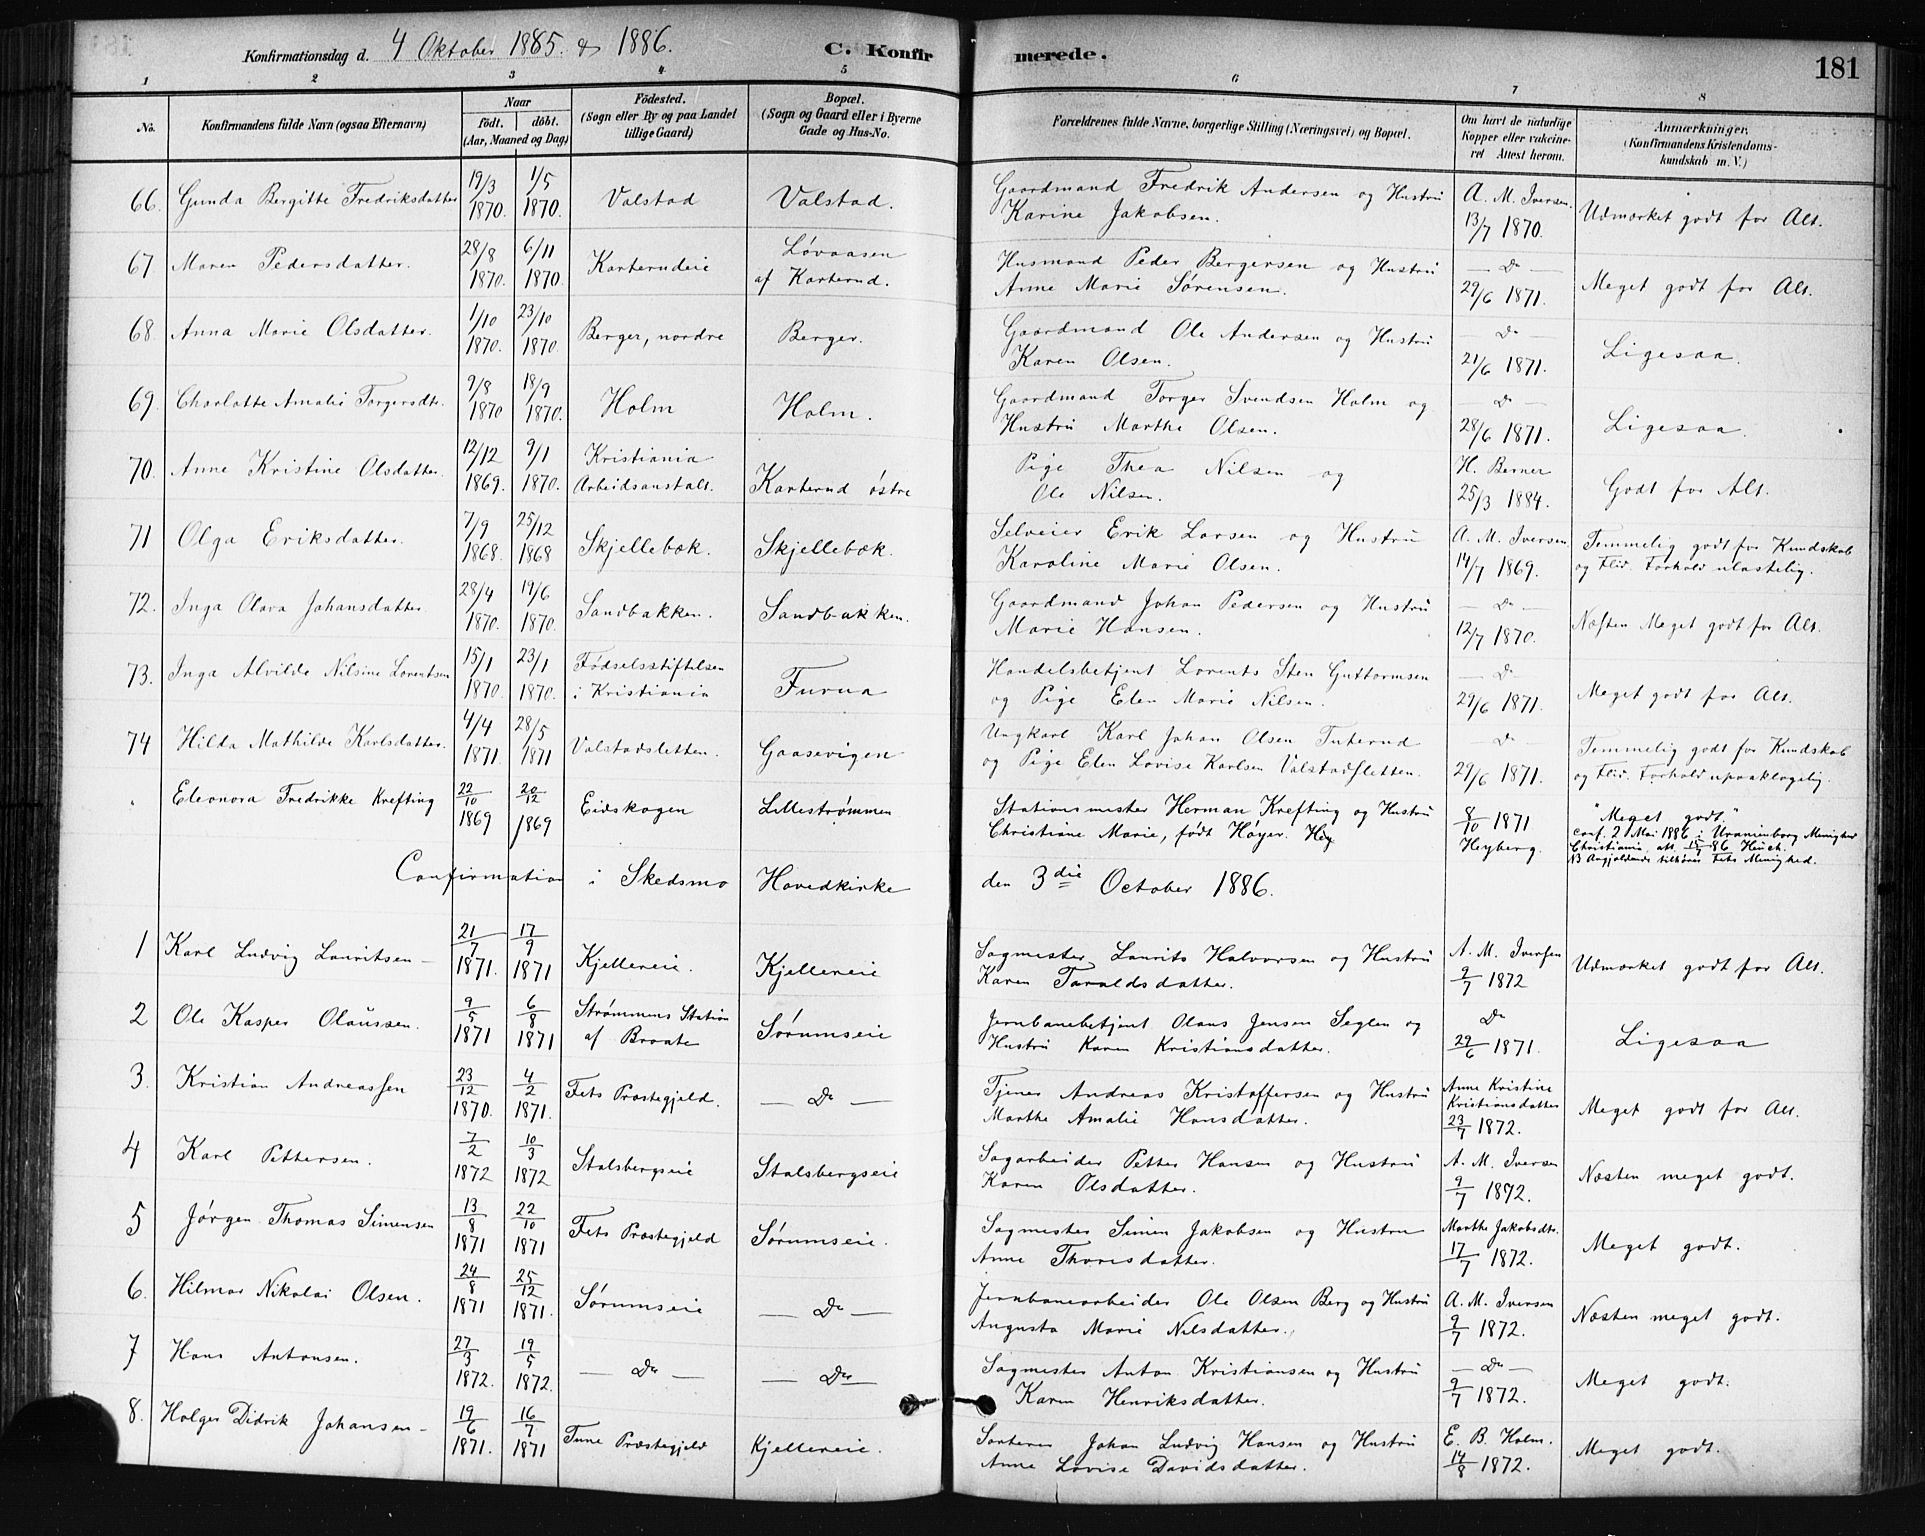 Konfirmationsdag d. 4 Oktober 1885. & 1886. C. Konfirmerede. 181
1 2 3 4 5 6 7 8
No. Konfirmandens fulde Navn (ogsaa Efternavn) Naar födt. döbt. (Aar, Maaned og Dag) Födested. (Sogn eller By og paa Landet tillige Gaard) Bopæl. (Sogn og Gaard eller i Byerne Gade og Hus-No. Forældrenes fulde Navne, borgerlige Stilling (Næringsvei) og Bopæl. Om havt de naturlige Kopper eller vakcineret Attest herom. Anmærkninger. (Konfirmandens Kristendomskundskab m. V.)
66. Gunda Bergitte Fredriksdatter 19/3 1870. 1/5 1870. Valstad Valstad. Gaardmand Fredrik Andersen og Hustru Karine Jakobsen. A. M. Iversen. 13/7 1870. Udmærket godt for Alt.
67 Maren Pedersdatter. 28/8 1870. 6/11 1870. Karterudeie Løvaasen af Karterud. Husmand Peder Bergersen og Hustru Anne Marie Sørensen. — Do — 29/6 1871. Meget godt for Alt.
68. Anna Marie Olsdatter. 1/10 1870. 23/10 1870. Berger, nordre Berger. Gaardmand Ole Andersen og Hustru Karen Olsen. — Do — 21/6 1871. Ligesaa.
69. Charlotte Amalie Torgersdtr. 9/8 1870 18/9 1870. Holm Holm. Gaardmand Torger Svendsen Holm og Hustru Marthe Olsen. — Do — 28/6 1871. Ligesaa.
70. Anne Kristine Olsdatter. 12/12 1869. 9/1 1870. Kristiania Arbeidsanstalt. Karterud østre Pige Thea Nilsen og Ole Nilsen. H. Berner 25/3 1884. Godt for Alt.
71 Olga Eriksdatter. 7/9 1868. 25/12 1868 Skjellebæk. Skjellebæk. Selveier Erik Larsen og Hustru Karoline Marie Olsen. A. M. Iversen 14/7 1869. Temmelig godt for Kundskab og Flid. Forhold ulastelig.
72. Inga Olava Johansdatter. 28/4 1870. 19/6 1870. Sandbakken. Sandbakken. Gaardmand Johan Pedersen og Hustru Marie Hansen. — Do — 12/7 1870. Næsten Meget godt for Alt.
73. Inga Alvilde Nilsine Lorentsen 15/1 1870. 23/1 1870. Fødselsstiftelsen i Kristiania Furua Handelsbetjent Lorents Sten Guttormsen og Pige Elen Marie Nilsen. — Do — 29/6 1871. Meget godt for Alt.
74 Hilda Mathilde Karlsdatter. 4/4 1871. 28/5 1871 Valstadsletten. Gaasevigen Ungkarl Karl Johan Olsen Tuterud og Pige Elen Lovise Karlsen Valstadsletten. Do 29/6 1871. Temmelig godt for Kundskab og Flid. Forhold upaaklagelig.
Eleonora Fredrikke Krefting 22/10 1869 20/12 1869 Eidskogen Lillestrømmen Stationsmester Herman Krefting og Hustru Christiane Marie, født Høyer. 8/10 1871 Heyberg. "Meget godt." conf. 2 Mai 1886 i Uranienborg Menighed Christiania. att. 15/7 86 Heuch. NB Angjældende tilhører Fets Menighed.
Confirmation i Skedsmo Hovedkirke den 3die October 1886.
1 Karl Ludvig Lauritsen — 21/7 1871. 17/9 1871 Kjellereie. Kjellereie Sagmester Laurits Halvorsen og Hustru Karen Taraldsdatter. A. M. Iversen 9/7 1872 Udmærket godt for Alt.
2 Ole Kasper Olaussen. 9/5 1871 6/8 1871 Strømmens Station af Braate Sørumseie Jernbanebetjent Olaus Jensen Seglen og Hustru Karen Kristiansdatter. Do 29/6 1871. Ligesaa
3. Kristian Andreassen 23/12 1870. 4/2 1871. Fets Præstegjeld. — Do — Tjener Andreas Kristoffersen og Hustru Marthe Amalie Hansdatter. Anne Kristine Kristiansdatter 23/7 1872. Meget godt for Alt.
4 Karl Pettersen. 7/2 1872 10/3 1872 Stalsbergseie Stalsbergseie Sagarbeider Petter Hansen og Hustru Karen Olsdatter. A. M. Iversen 9/7 1872. Næsten meget godt.
5 Jørgen Thomas Simensen 13/8 1871 22/10 1871 Fets Præstegjeld Sørumseie. Sagmester Simen Jakobsen og Hustru Anne Thoresdatter. Marthe Jakobsdtr. 17/7 1872. Meget godt.
6. Hilmar Nikolai Olsen. 24/8 1871 25/12 1871. Sørumseie — Do — Jernbanearbeider Ole Olsen Berg og Hustru Augusta Marie Nilsdatter. A. M. Iversen 9/7 1872. Næsten meget godt.
7 Hans Antonsen. 27/3 1872. 19/5 1872. — Do — — Do — Sagmester Anton Kristiansen og Hustru Karen Henriksdatter. — Do — 9/7 1872. Meget godt.
8. Holger Didrik Johansen — 19/6 1871. 16/7 1871 Tune Præstegjeld Kjellereie. Sorterer Johan Ludvig Hansen og Hustru Anne Lovise Davidsdatter. E. B. Holm. 14/8 1872. Meget godt.